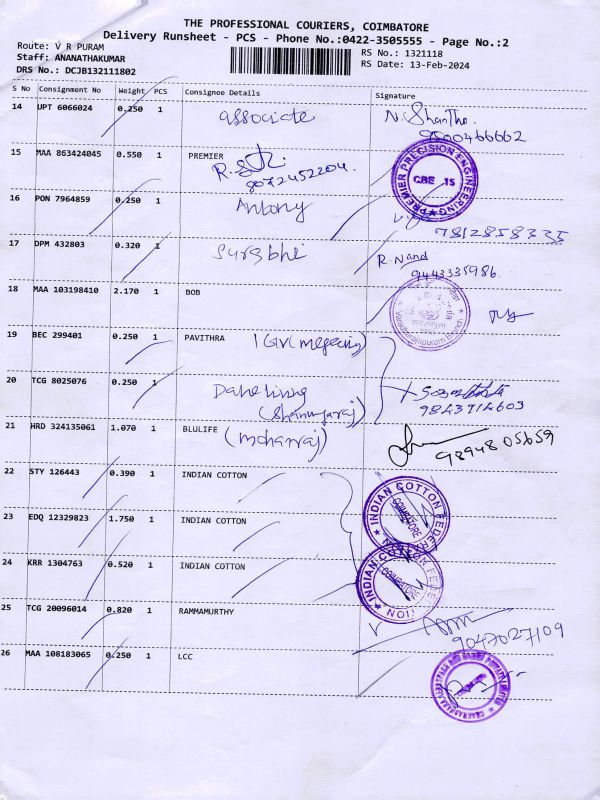 THE PROFESSIONAL COURIERS, COIMBATORE
Delivery Runsheet - PCS - Phone No.:0422-3505555 - Page No.:2
Route: V R PURAM
Staff: ANANATHAKUMAR
DRS No.: DCJB132111802
RS No.: 1321118
RS Date: 13-Feb-2024
S No Consignment No Weight PCS Consignee Details Signature
14 UPT 6066024 0.250 1 associate N. Shantha.
9500466662
15 MAA 863424045 0.550 1 PREMIER
8072452204.
PREMIER PRECISION ENGINEERING
CBE 15
16 PON 7964859 0.250 1 Antony
7812858335
17 DPM 432803 0.320 1 Surabhe R. Nand
9443335986.
18 MAA 103198410 2.170 1 BOB
19 BEC 299401 0.250 1 PAVITHRA
20 TCG 8025076 0.250 1
(Shanmugaraj)
9843714603
21 HRD 324135061 1.070 1 BLULIFE
(mohanraj) 9894805659
22 STY 126443 0.390 1 INDIAN COTTON
INDIAN COTTON FEDERATION
COIMBATORE
23 EDQ 12329823 1.750 1 INDIAN COTTON
24 KRR 1304763 0.520 1 INDIAN COTTON
INDIAN COTTON FEDERATION
COIMBATORE
25 TCG 20096014 0.820 1 RAMMAMURTHY
9047027109
26 MAA 108183065 0.250 1 LCC